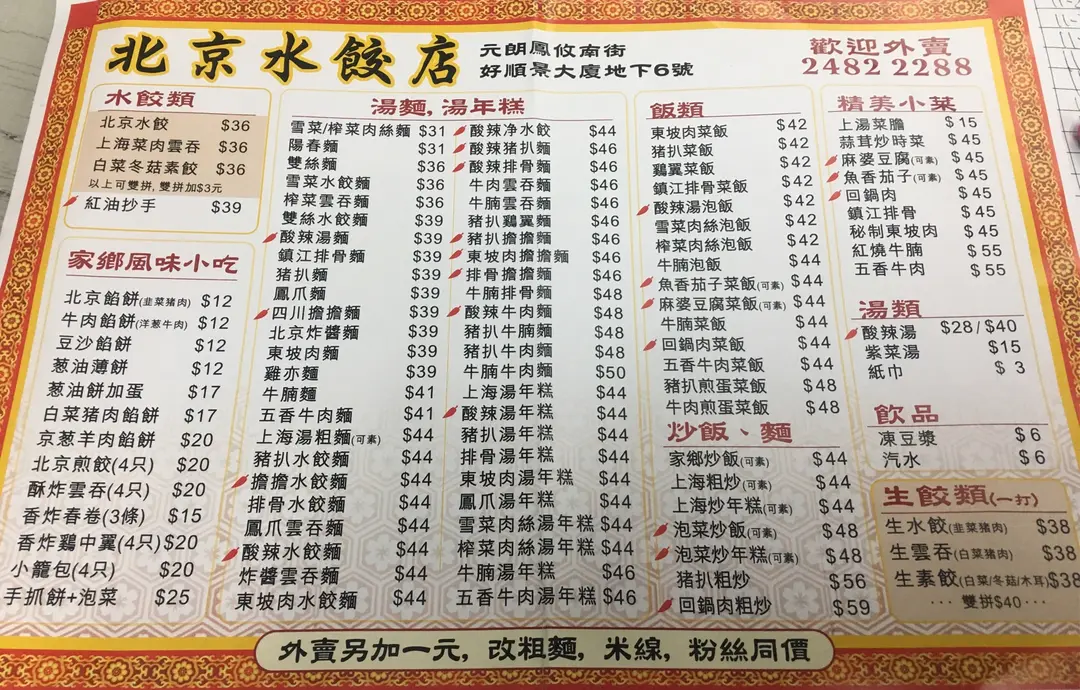 北京水餃店
元朗鳳攸南街
好順景大廈地下6號
歡迎外賣
2482 2288
水餃類
北京水餃 $36
上海菜肉雲吞 $36
白菜冬菇素餃 $36
以上可雙拼, 雙拼加$3元
紅油抄手 $39
家鄉風味小吃
北京餡餅(韭菜豬肉) $12
牛肉餡餅(洋葱牛肉) $12
豆沙餡餅 $12
葱油薄餅 $12
葱油餅加蛋 $17
白菜猪肉餡餅 $17
京葱羊肉餡餅 $20
北京煎餃(4只) $20
酥炸雲吞(4只) $20
香炸春卷(3條) $15
香炸鷄中翼(4只) $20
小籠包(4只) $20
手抓餅+泡菜 $25
湯麵, 湯年糕
雪菜/榨菜肉絲麵 $31
陽春麵 $31
雙絲麵 $36
雪菜水餃麵 $36
榨菜雲吞麵 $36
雙絲水餃麵 $39
酸辣湯麵 $39
鎮江排骨麵 $39
猪扒麵 $39
鳳爪麵 $39
四川擔擔麵 $39
北京炸醬麵 $39
東坡肉麵 $39
雞亦麵 $39
牛腩麵 $41
五香牛肉麵 $41
上海湯粗麵(可素) $44
豬扒水餃麵 $44
擔擔水餃麵 $44
排骨水餃麵 $44
鳳爪雲吞麵 $44
酸辣水餃麵 $44
炸醬雲吞麵 $44
東坡肉水餃麵 $44
酸辣净水餃 $44
酸辣猪扒麵 $46
酸辣排骨麵 $46
牛肉雲吞麵 $46
牛腩雲吞麵 $46
豬扒鷄翼麵 $46
豬扒擔擔麵 $46
東坡肉擔擔麵 $46
排骨擔擔麵 $46
牛腩排骨麵 $48
酸辣牛肉麵 $48
豬扒牛腩麵 $48
豬扒牛肉麵 $48
牛腩牛肉麵 $50
上海湯年糕 $44
酸辣湯年糕 $44
豬扒湯年糕 $44
排骨湯年糕 $44
東坡肉湯年糕 $44
鳳爪湯年糕 $44
雪菜肉絲湯年糕 $44
榨菜肉絲湯年糕 $44
牛腩湯年糕 $46
五香牛肉湯年糕 $46
飯類
東坡肉菜飯 $42
猪扒菜飯 $42
鷄翼菜飯 $42
鎮江排骨菜飯 $42
酸辣湯泡飯 $42
雪菜肉絲泡飯 $42
榨菜肉絲泡飯 $42
牛腩泡飯 $44
魚香茄子菜飯(可素) $44
麻婆豆腐菜飯(可素) $44
牛腩菜飯 $44
回鍋肉菜飯 $44
五香牛肉菜飯 $44
豬扒煎蛋菜飯 $48
牛肉煎蛋菜飯 $48
炒飯、麵
家鄉炒飯(可素) $44
上海粗炒(可素) $44
上海炒年糕(可素) $44
泡菜炒飯(可素) $48
泡菜炒年糕(可素) $48
猪扒粗炒 $56
回鍋肉粗炒 $59
精美小菜
上湯菜膽 $15
蒜茸炒時菜 $45
麻婆豆腐(可素) $45
魚香茄子(可素) $45
回鍋肉 $45
鎮江排骨 $45
秘制東坡肉 $45
紅燒牛腩 $55
五香牛肉 $55
湯類
酸辣湯 $28/$40
紫菜湯 $15
紙巾 $3
飲品
凍豆漿 $6
汽水 $6
生餃類(一打)
生水餃(韭菜豬肉) $38
生雲吞(白菜豬肉) $38
生素餃(白菜/冬菇/木耳) $38
···雙拼$40···
外賣另加一元, 改粗麵, 米線, 粉絲同價